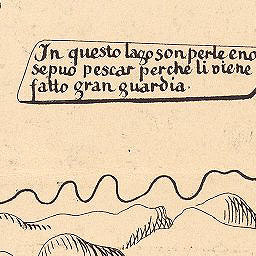 In questo lago son perle e no
se puo pescar perche li viene
fatto gran guardia.